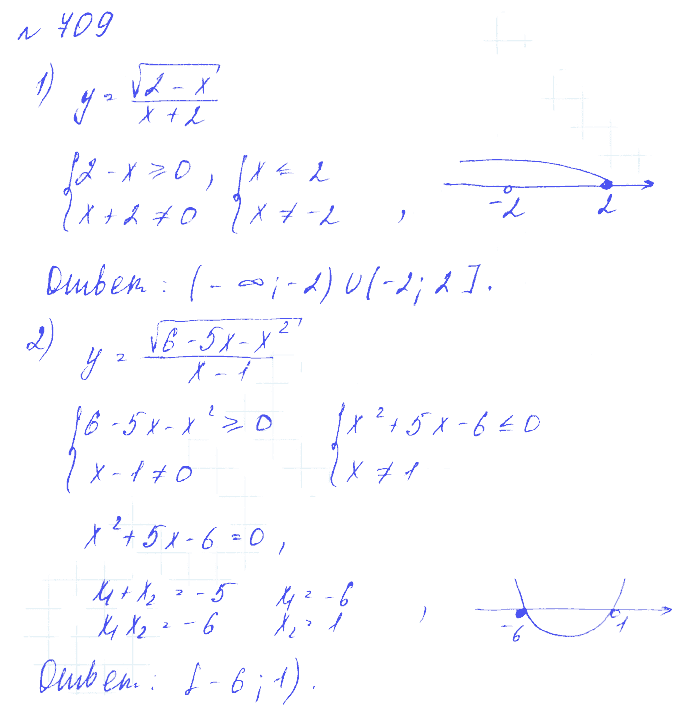 № 709
1) y = √(2 - x) / (x + 2)
{2 - x ≥ 0, {x ≤ 2
{x + 2 ≠ 0 {x ≠ -2 ,
-2 2
Ответ: (-∞; -2) ∪ (-2; 2].
2) y = √(6 - 5x - x²) / (x - 1)
{6 - 5x - x² ≥ 0 {x² + 5x - 6 ≤ 0
{x - 1 ≠ 0 {x ≠ 1
x² + 5x - 6 = 0,
x₁ + x₂ = -5 x₁ = -6
x₁ x₂ = -6 x₂ = 1 ,
-6 1
Ответ: [-6; 1).